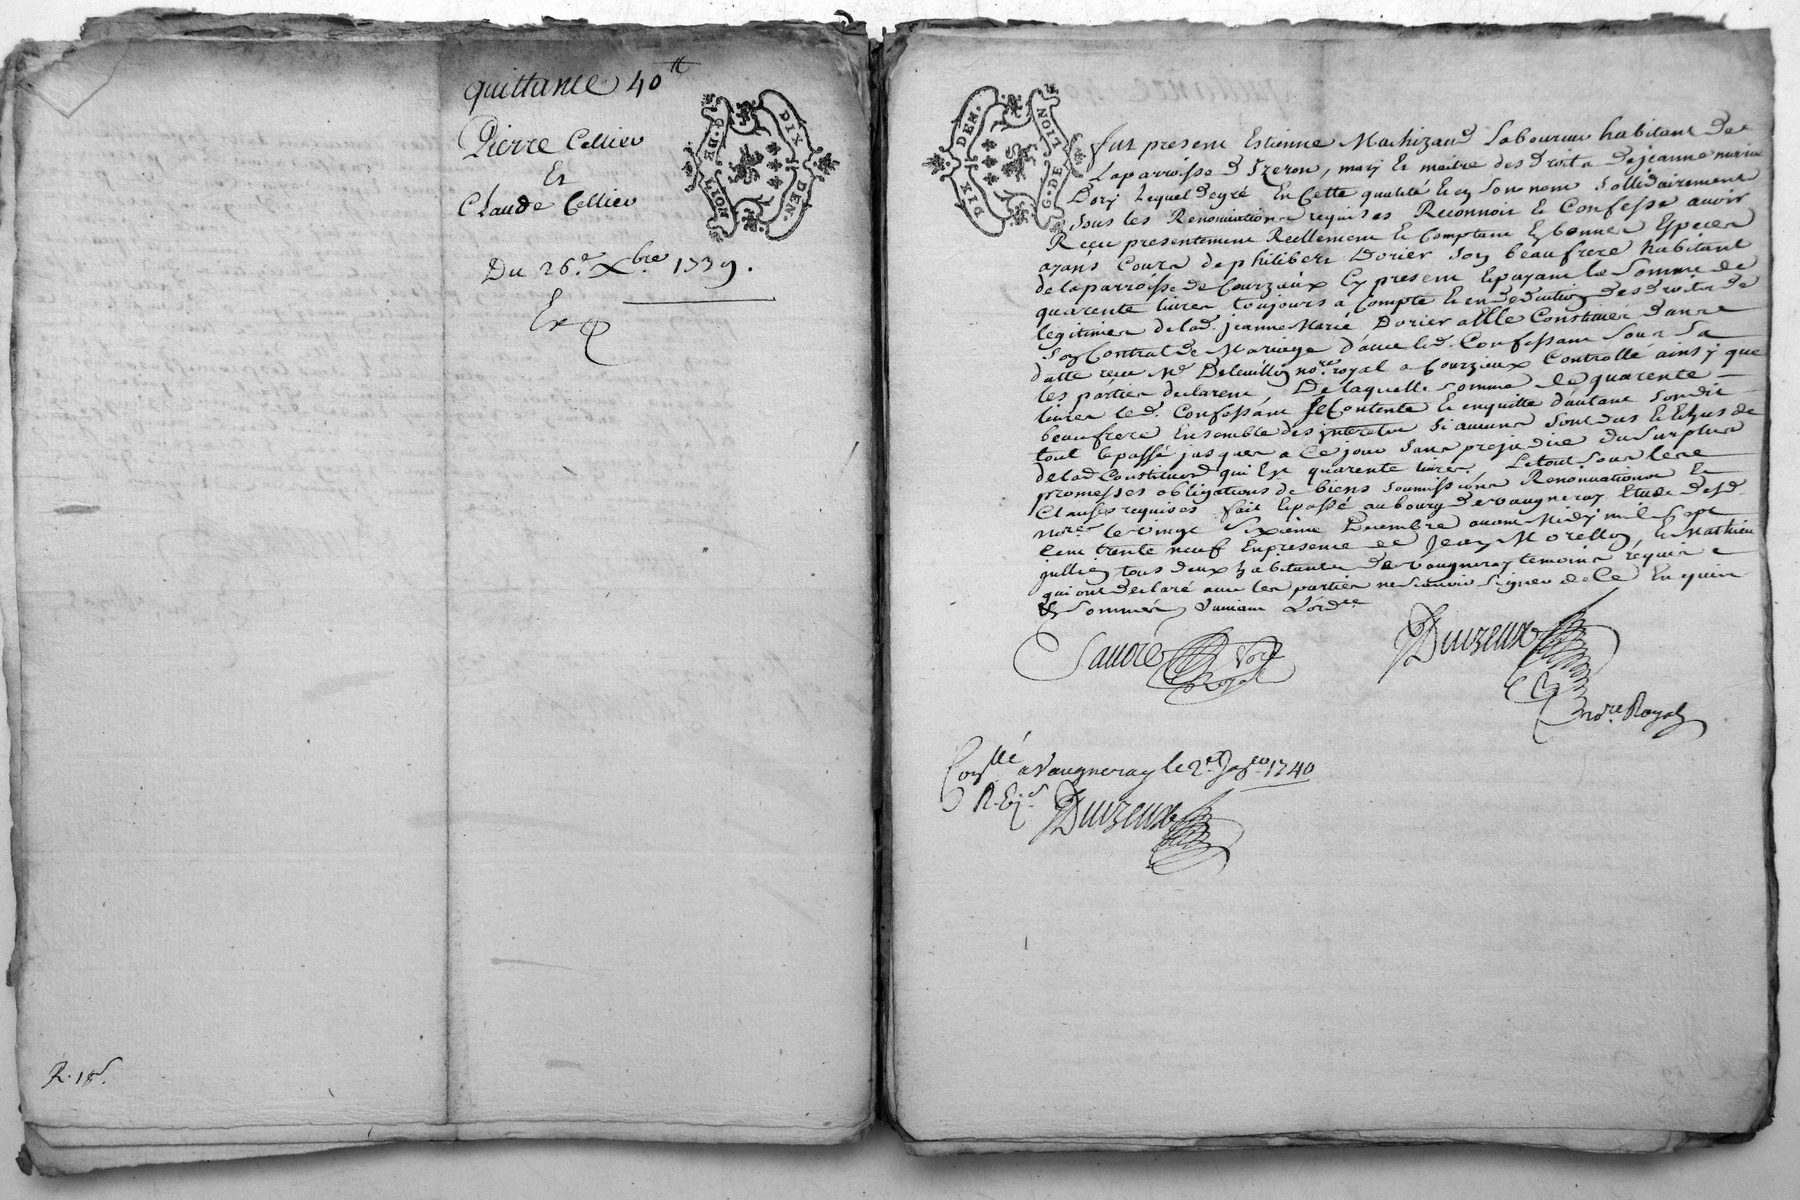 quittance 40tt
Pierre Cellier
Et
Claude Cellier
Du 26e. Xbre 1739.
Ex
G. DE LION
DIX DEN.
R. 18s.
DIX DEN.
G. DE LION
fut present Estienne Machizaud Laboureur habitant de
Laparroisse d'Izeron, mary Et maitre des droits de jeanne marie
Dory Lequel degré En Cette qualité Et En Son nom Sollidairement
Sous les Renontiations requises Reconnoit Et Confesse avoir
Reçu presentement Reellement Et Comptant En bonnes Especes
ayans Cours de philibert Dorier Son beaufrere habitant
de laparroisse de Courzieux Cy present Epayant la Somme de
quarente livres toujours a Compte Et en deduction des droits de
legitimes de lad. jeanne Marie Dorier a Elle Constitués dans
Son Contrat de Mariage d'avec led. Confessant Sous Sa
datte reçu Me. Deleuillon nore. royal a Courzieux Controllé ainsy que
les parties declarent, De laquelle Somme de quarente
livres led. Confessant Se Contente Et en quitte d'autant Sondit
beaufrere Ensemble des interets Si aucuns Sont dus Et Echus de
tout le passé jusques a Ce jour Sans prejudice du Surplus
de lad. Constitution qui Est quarente livres, Le tout Sous les
promesses obligations de biens Soumissions Renontiations Et
Clauses requises fait Et passé au bourg de vaugneray Etude desd.
nores. le vingt Sixième Decembre avant Midy mil Sept
Cent trente neuf En presence de Jean Morellon, Et Mathieu
jullien tous deux habitants de vaugneray temoins requis
qui ont declaré avec les parties ne Scavoir Signer de Ce Enquis
Et Sommés Suivant L'ordce
Sauvré Nore Royal
Duizeux
nore. Royal
Conllé a Vaugneray le 2e. Janer. 1740
R. Six s.
Duizeux